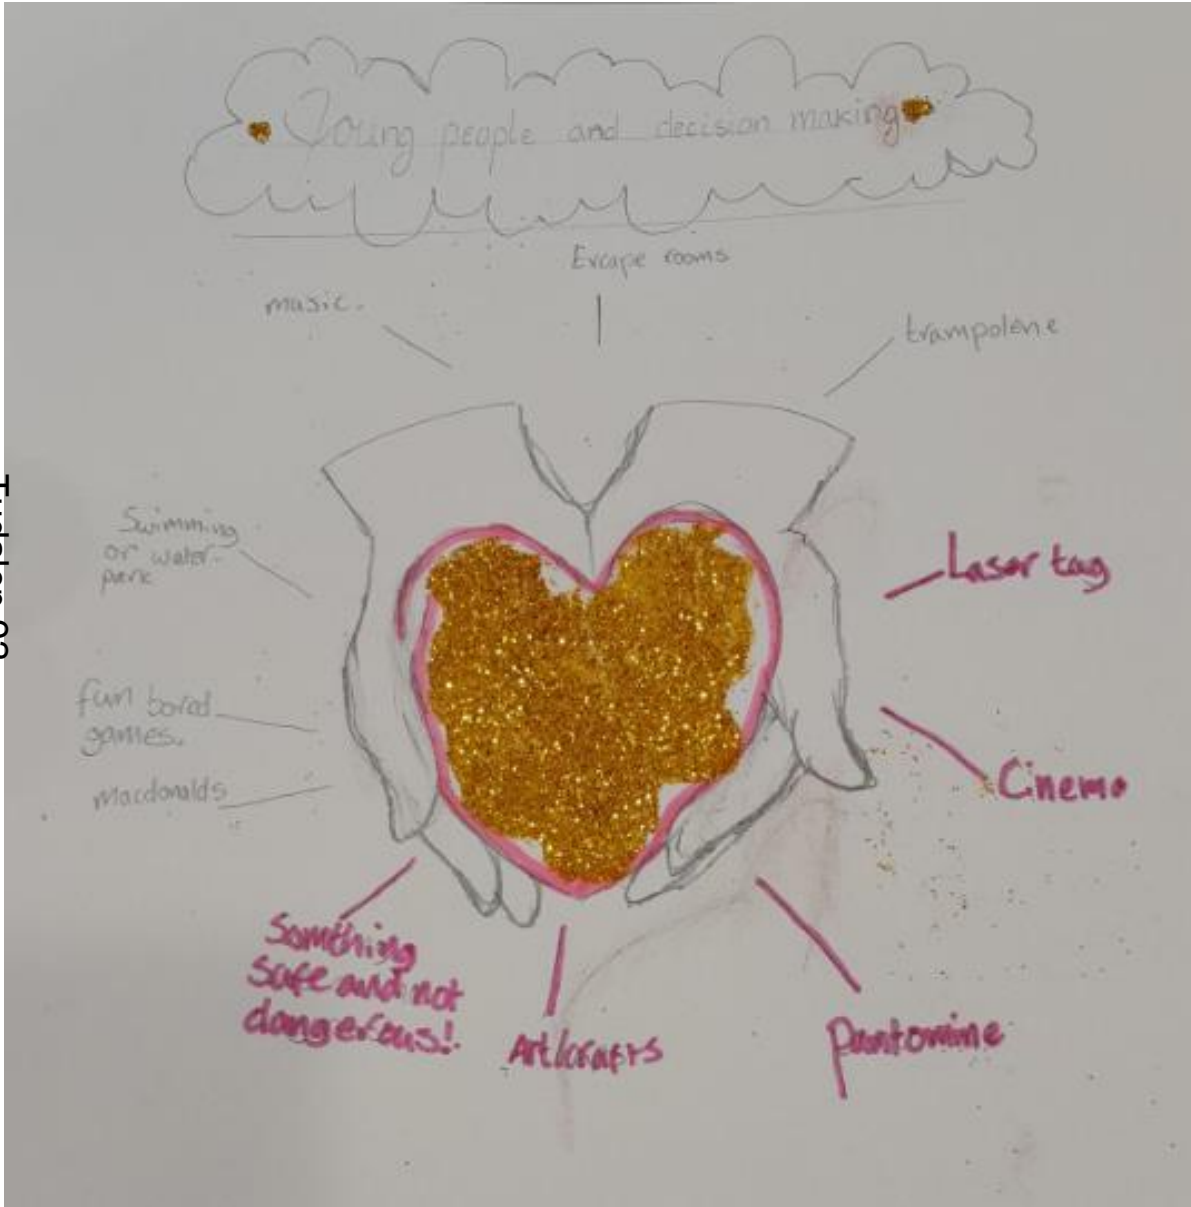 Young people and decision making
Escape rooms
music.
trampolene
Swimming
or water
park
Laser tag
fun bored
games.
macdonalds
Cinema
Somthing
safe and not
dangerous!
Art/crafts
Pantomine